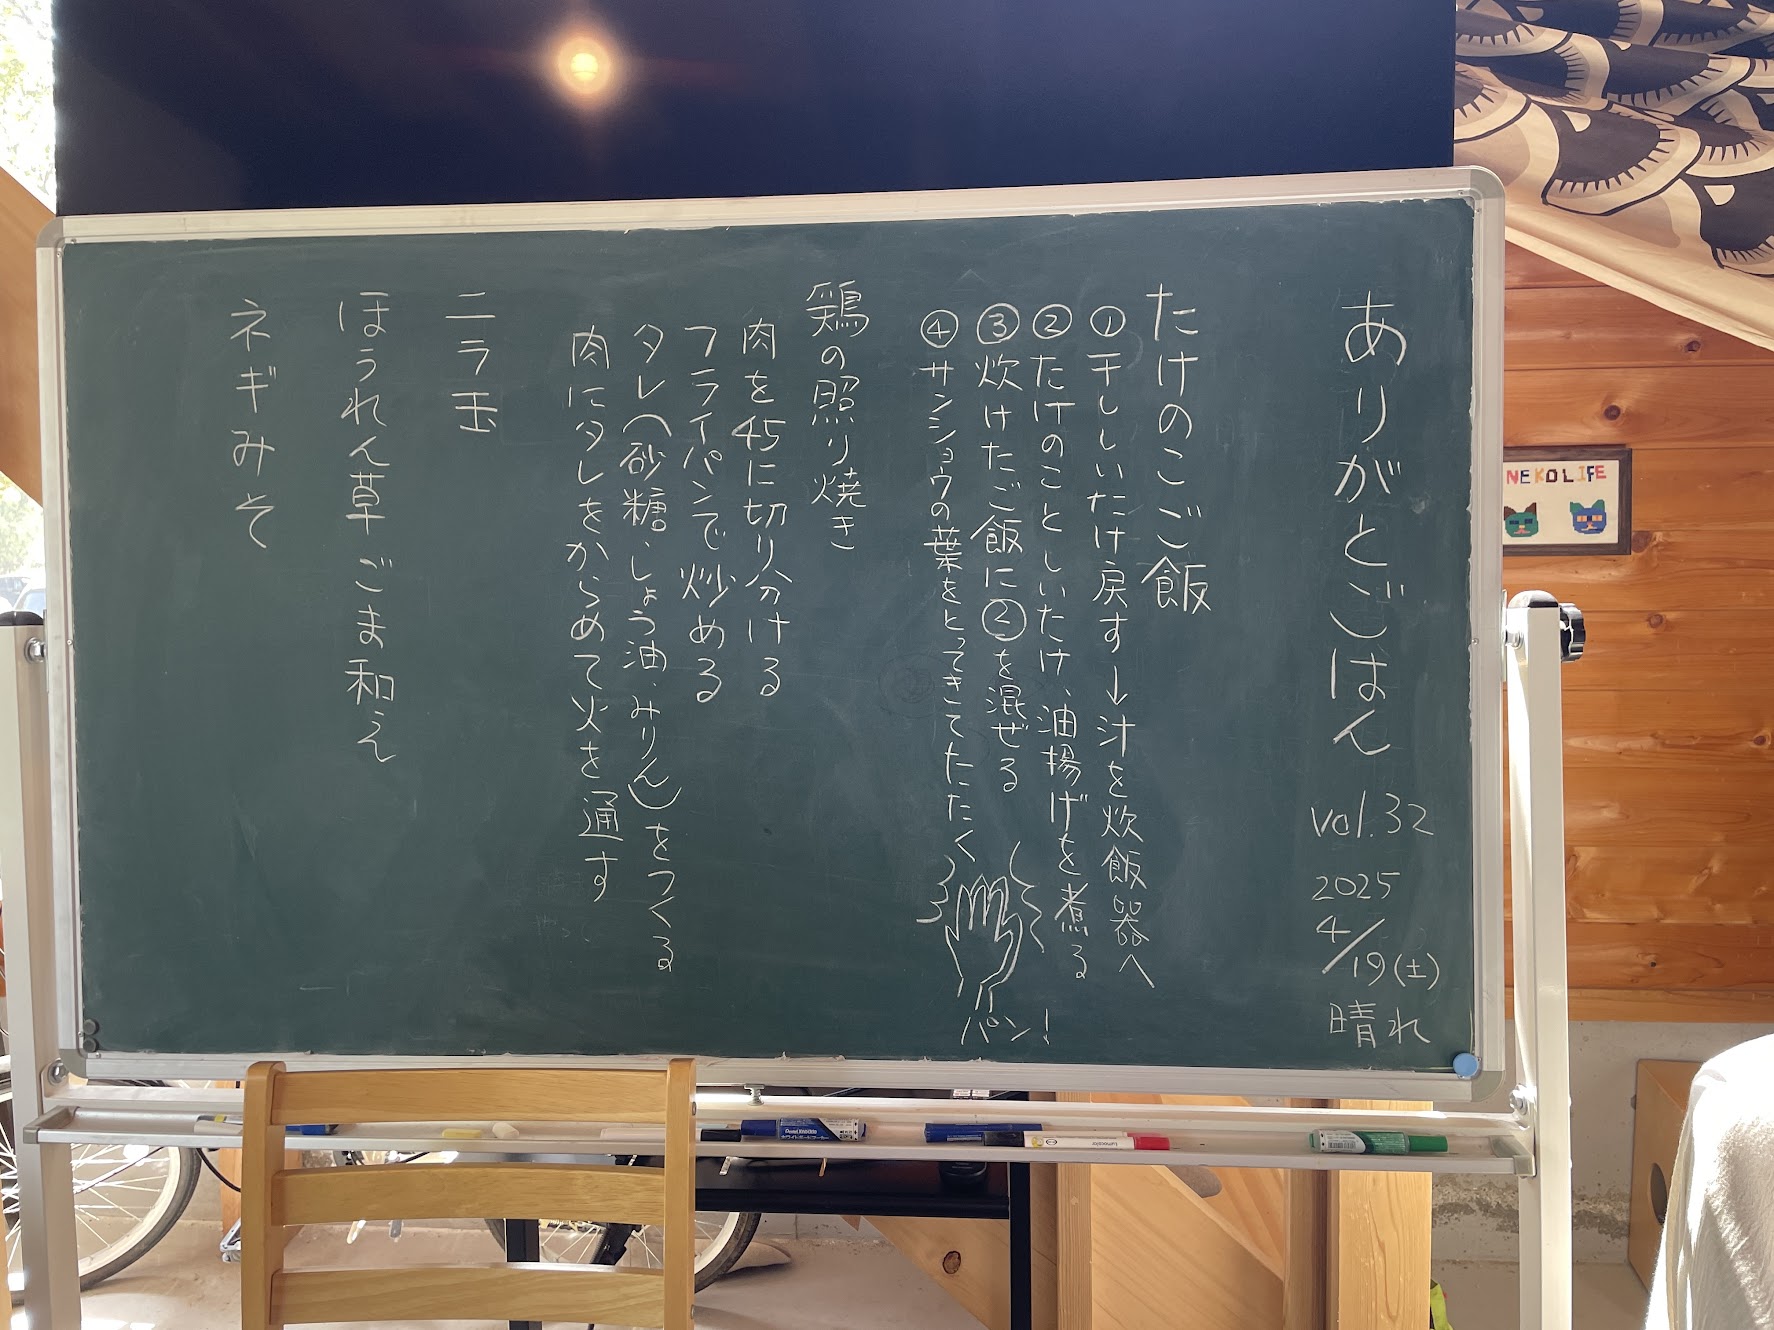 ありがとごはん
vol.32
2025
4/19(土)
晴れ
たけのこご飯
①干ししいたけ戻す→汁を炊飯器へ
②たけのことしいたけ、油揚げを煮る
③炊けたご飯に②を混ぜる
④サンショウの葉をとってきてたたく
パン!
鶏の照り焼き
肉を45に切り分ける
フライパンで炒める
タレ(砂糖、しょう油、みりん)をつくる
肉にタレをからめて火を通す
ニラ玉
ほうれん草ごま和え
ネギみそ
NEKOLIFE